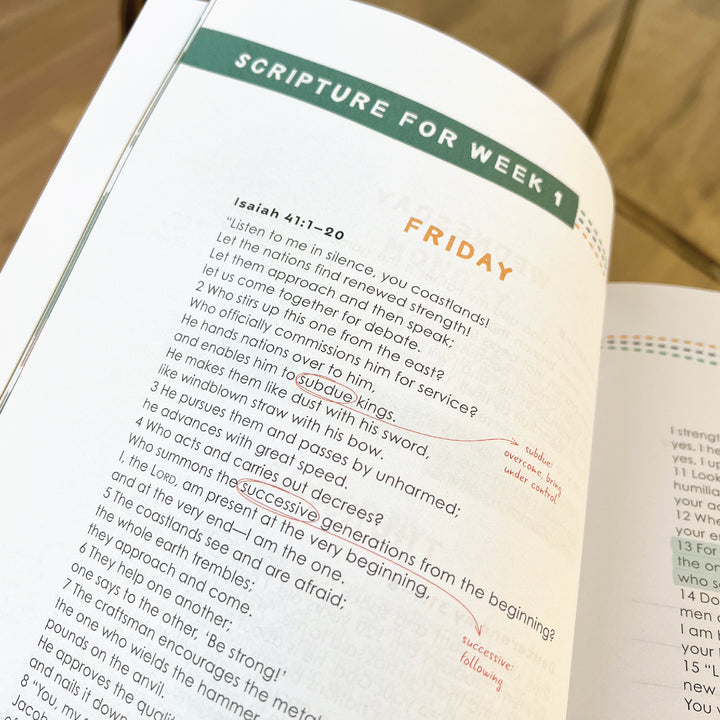 SCRIPTURE FOR WEEK 1
FRIDAY
Isaiah 41:1–20
"Listen to me in silence, you coastlands!
Let the nations find renewed strength!
Let them approach and then speak;
let us come together for debate.
2 Who stirs up this one from the east?
Who officially commissions him for service?
He hands nations over to him,
and enables him to subdue kings.
He makes them like dust with his sword,
like windblown straw with his bow.
3 He pursues them and passes by unharmed;
he advances with great speed.
4 Who acts and carries out decrees?
Who summons the successive generations from the beginning?
I, the LORD, am present at the very beginning,
and at the very end—I am the one.
5 The coastlands see and are afraid;
the whole earth trembles;
they approach and come.
6 They help one another;
one says to the other, 'Be strong!'
7 The craftsman encourages the metal
the one who wields the hammer
pounds on the anvil.
He approves the quality
and nails it down
8 "You, my
Jacob
subdue:
overcome, bring
under control
successive:
following
I strengt
yes, I he
yes, I up
11 Look
humilia
your ad
12 Who
your e
13 For
the on
who s
14 Do
men o
I am h
your
15 "L
new
You